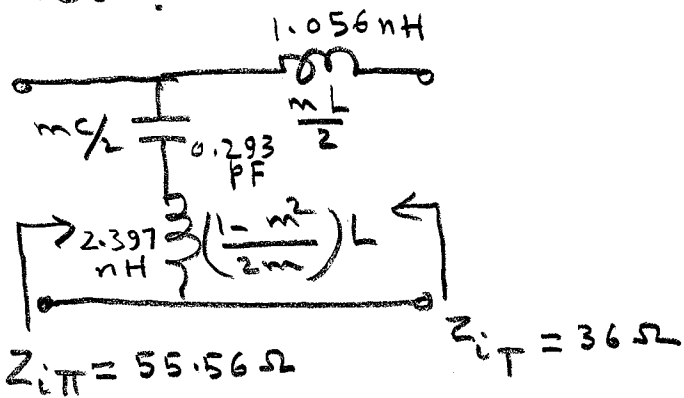 1.056 nH
mL/2
mC/2
0.293 pF
2.397 nH
(1-m²/2m) L
Z_iπ = 55.56 Ω
Z_iT = 36 Ω